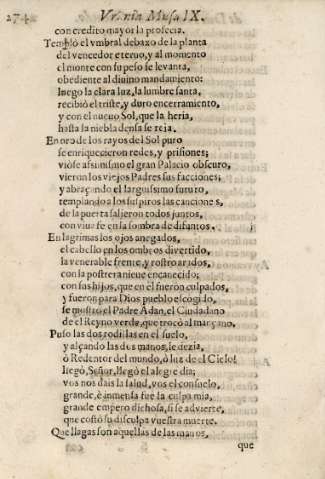 274 Vrania Musa IX.
con credito mayor la profecia.
Tembló el vmbral debaxo de la planta
del vencedor eterno, y al momento
el monte con su peso se leuanta,
obediente al diuino mandamiento:
luego la clara luz, la lumbre santa,
recibió el triste, y duro encerramiento,
y con el nueuo Sol, que la heria,
hasta la niebla densa se reia.
En oro de los rayos del Sol puro
se enriquecieron redes, y prisiones;
viose assimismo el gran Palacio obscuro,
vieron los viejos Padres sus facciones;
y abraçando el larguissimo futuro,
templando a los suspiros las canciones,
de la puerta salieron todos juntos,
con viua fe en la sombra de difuntos.
En lagrimas los ojos anegados,
el cabello en los ombros diuertido,
la venerable frente, y rostro arados,
con la postrera nieue encanecido;
con sus hijos, que en el fueron culpados,
y fueron para Dios pueblo escogido,
se mostró el Padre Adan, el Ciudadano
de el Reyno verde, que trocò al mançano.
Puso las dos rodillas en el suelo,
y alçando las dos manos, le dezia,
ò Redentor del mundo, ò luz de el Cielo!
llegò, Señor, llegò el alegre dia;
vos nos dais la salud, vos el consuelo,
grande, è inmensa fue la culpa mia,
grande empero dichosa, si se aduierte,
que costò su disculpa vuestra muerte.
Que llagas son aquellas de las manos,
que